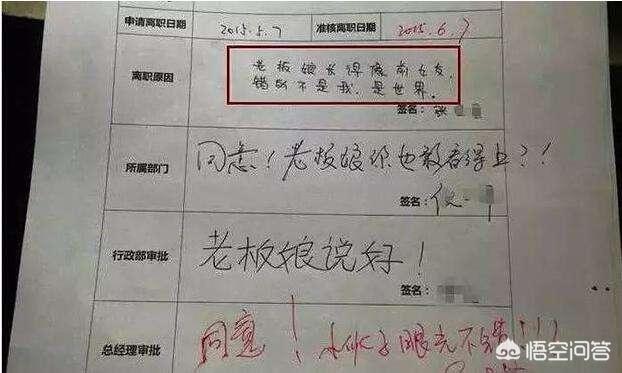 申请离职日期 2015.5.7 准核离职日期 2015.6.7
离职原因
老板娘长得像前女友,
错的不是我,是世界。
签名: 张
所属部门
同意!老板娘你也敢看得上?!
签名:
行政部审批
老板娘说好!
签名:
总经理审批
同意! 小伙子眼光不错!!!
悟空问答